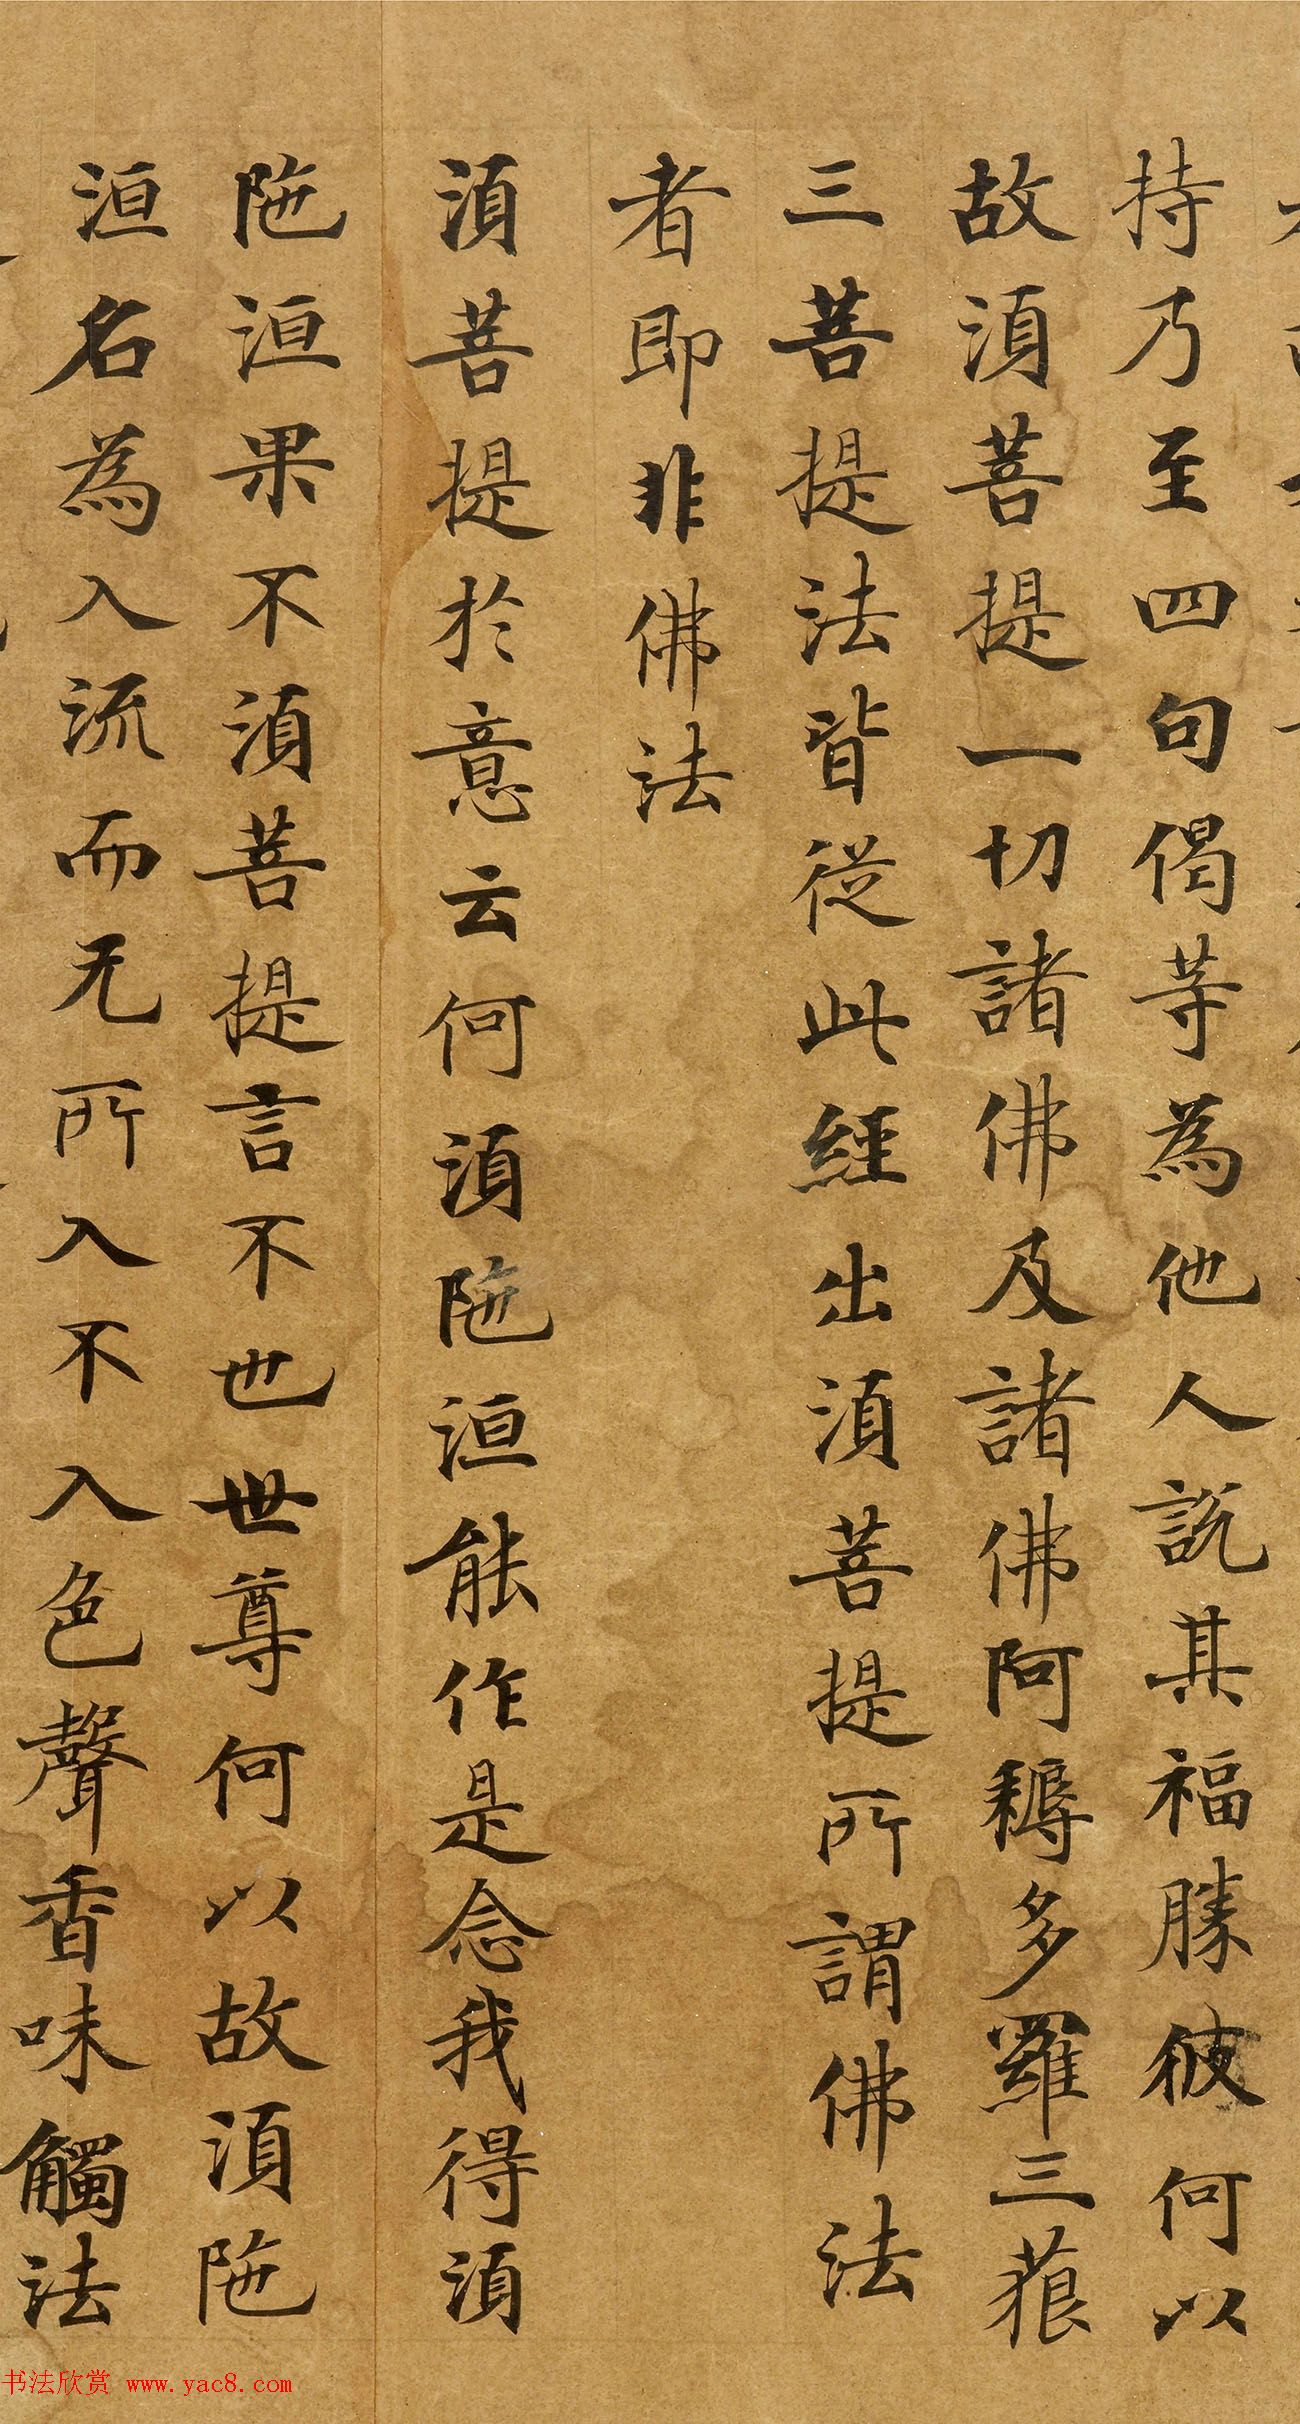 持乃至四句偈等為他人説其福勝彼何以
故湏菩提一切諸佛及諸佛阿耨多羅三藐
三菩提法皆従此經出湏菩提所謂佛法
者即非佛法
湏菩提於意云何湏陁洹能作是念我得湏
陁洹果不湏菩提言不也世尊何以故湏陁
洹名為入流而无所入不入色聲香味觸法
书法欣赏 www.yac8.com